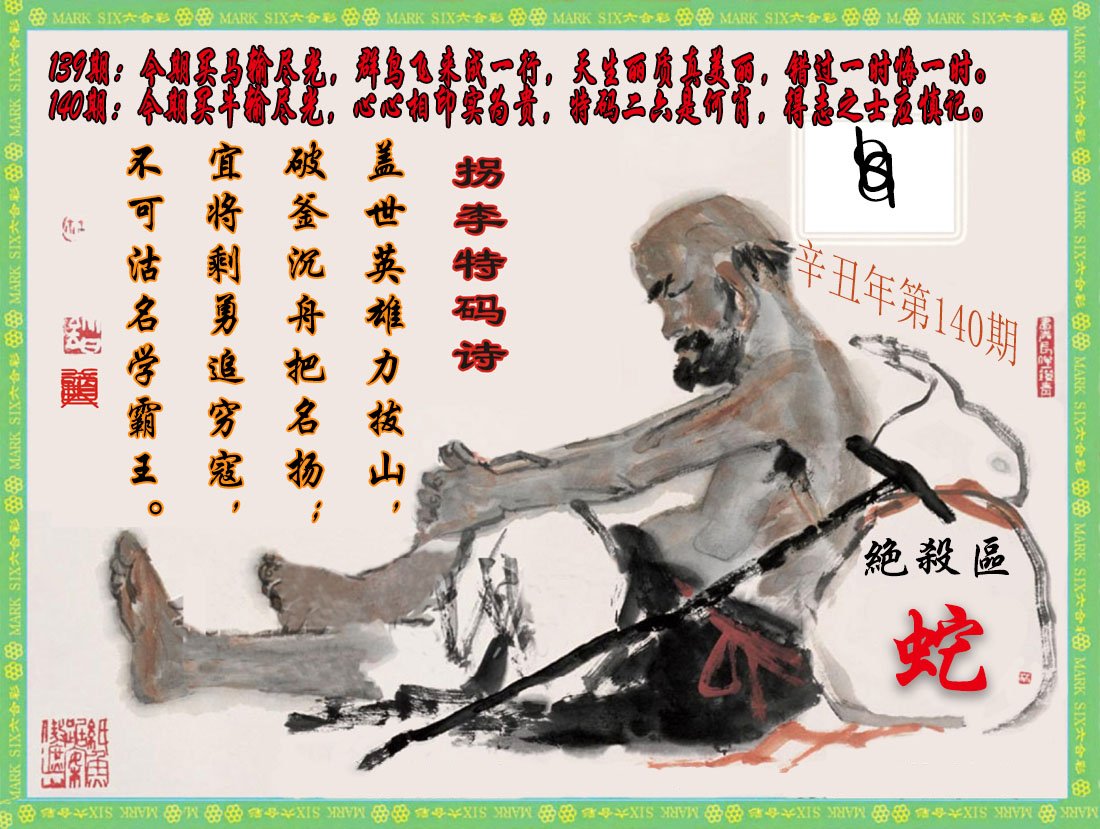 MARK SIX六合彩 MARK SIX六合彩 MARK SIX六合彩 MARK SIX六合彩 MARK SIX六合彩 MARK SIX六合彩
139期：今期买马输尽光，群鸟飞来成一行，天生丽质真美丽，错过一时悔一时。
140期：今期买牛输尽光，心心相印实为贵，特码二六是何肖，得志之士应慎记。
拐李特码诗
盖世英雄力拔山，
破釜沉舟把名扬；
宜将剩勇追穷寇，
不可沽名学霸王。
辛丑年第140期
絕殺區
蛇